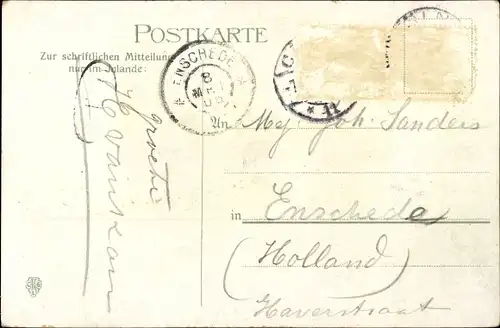 POSTKARTE
Zur schriftlichen Mitteilung
nur im Inlande:
ENSCHEDE
An
Mej Joh. Sanders
in Enschede
(Holland)
Haverstraat
groete